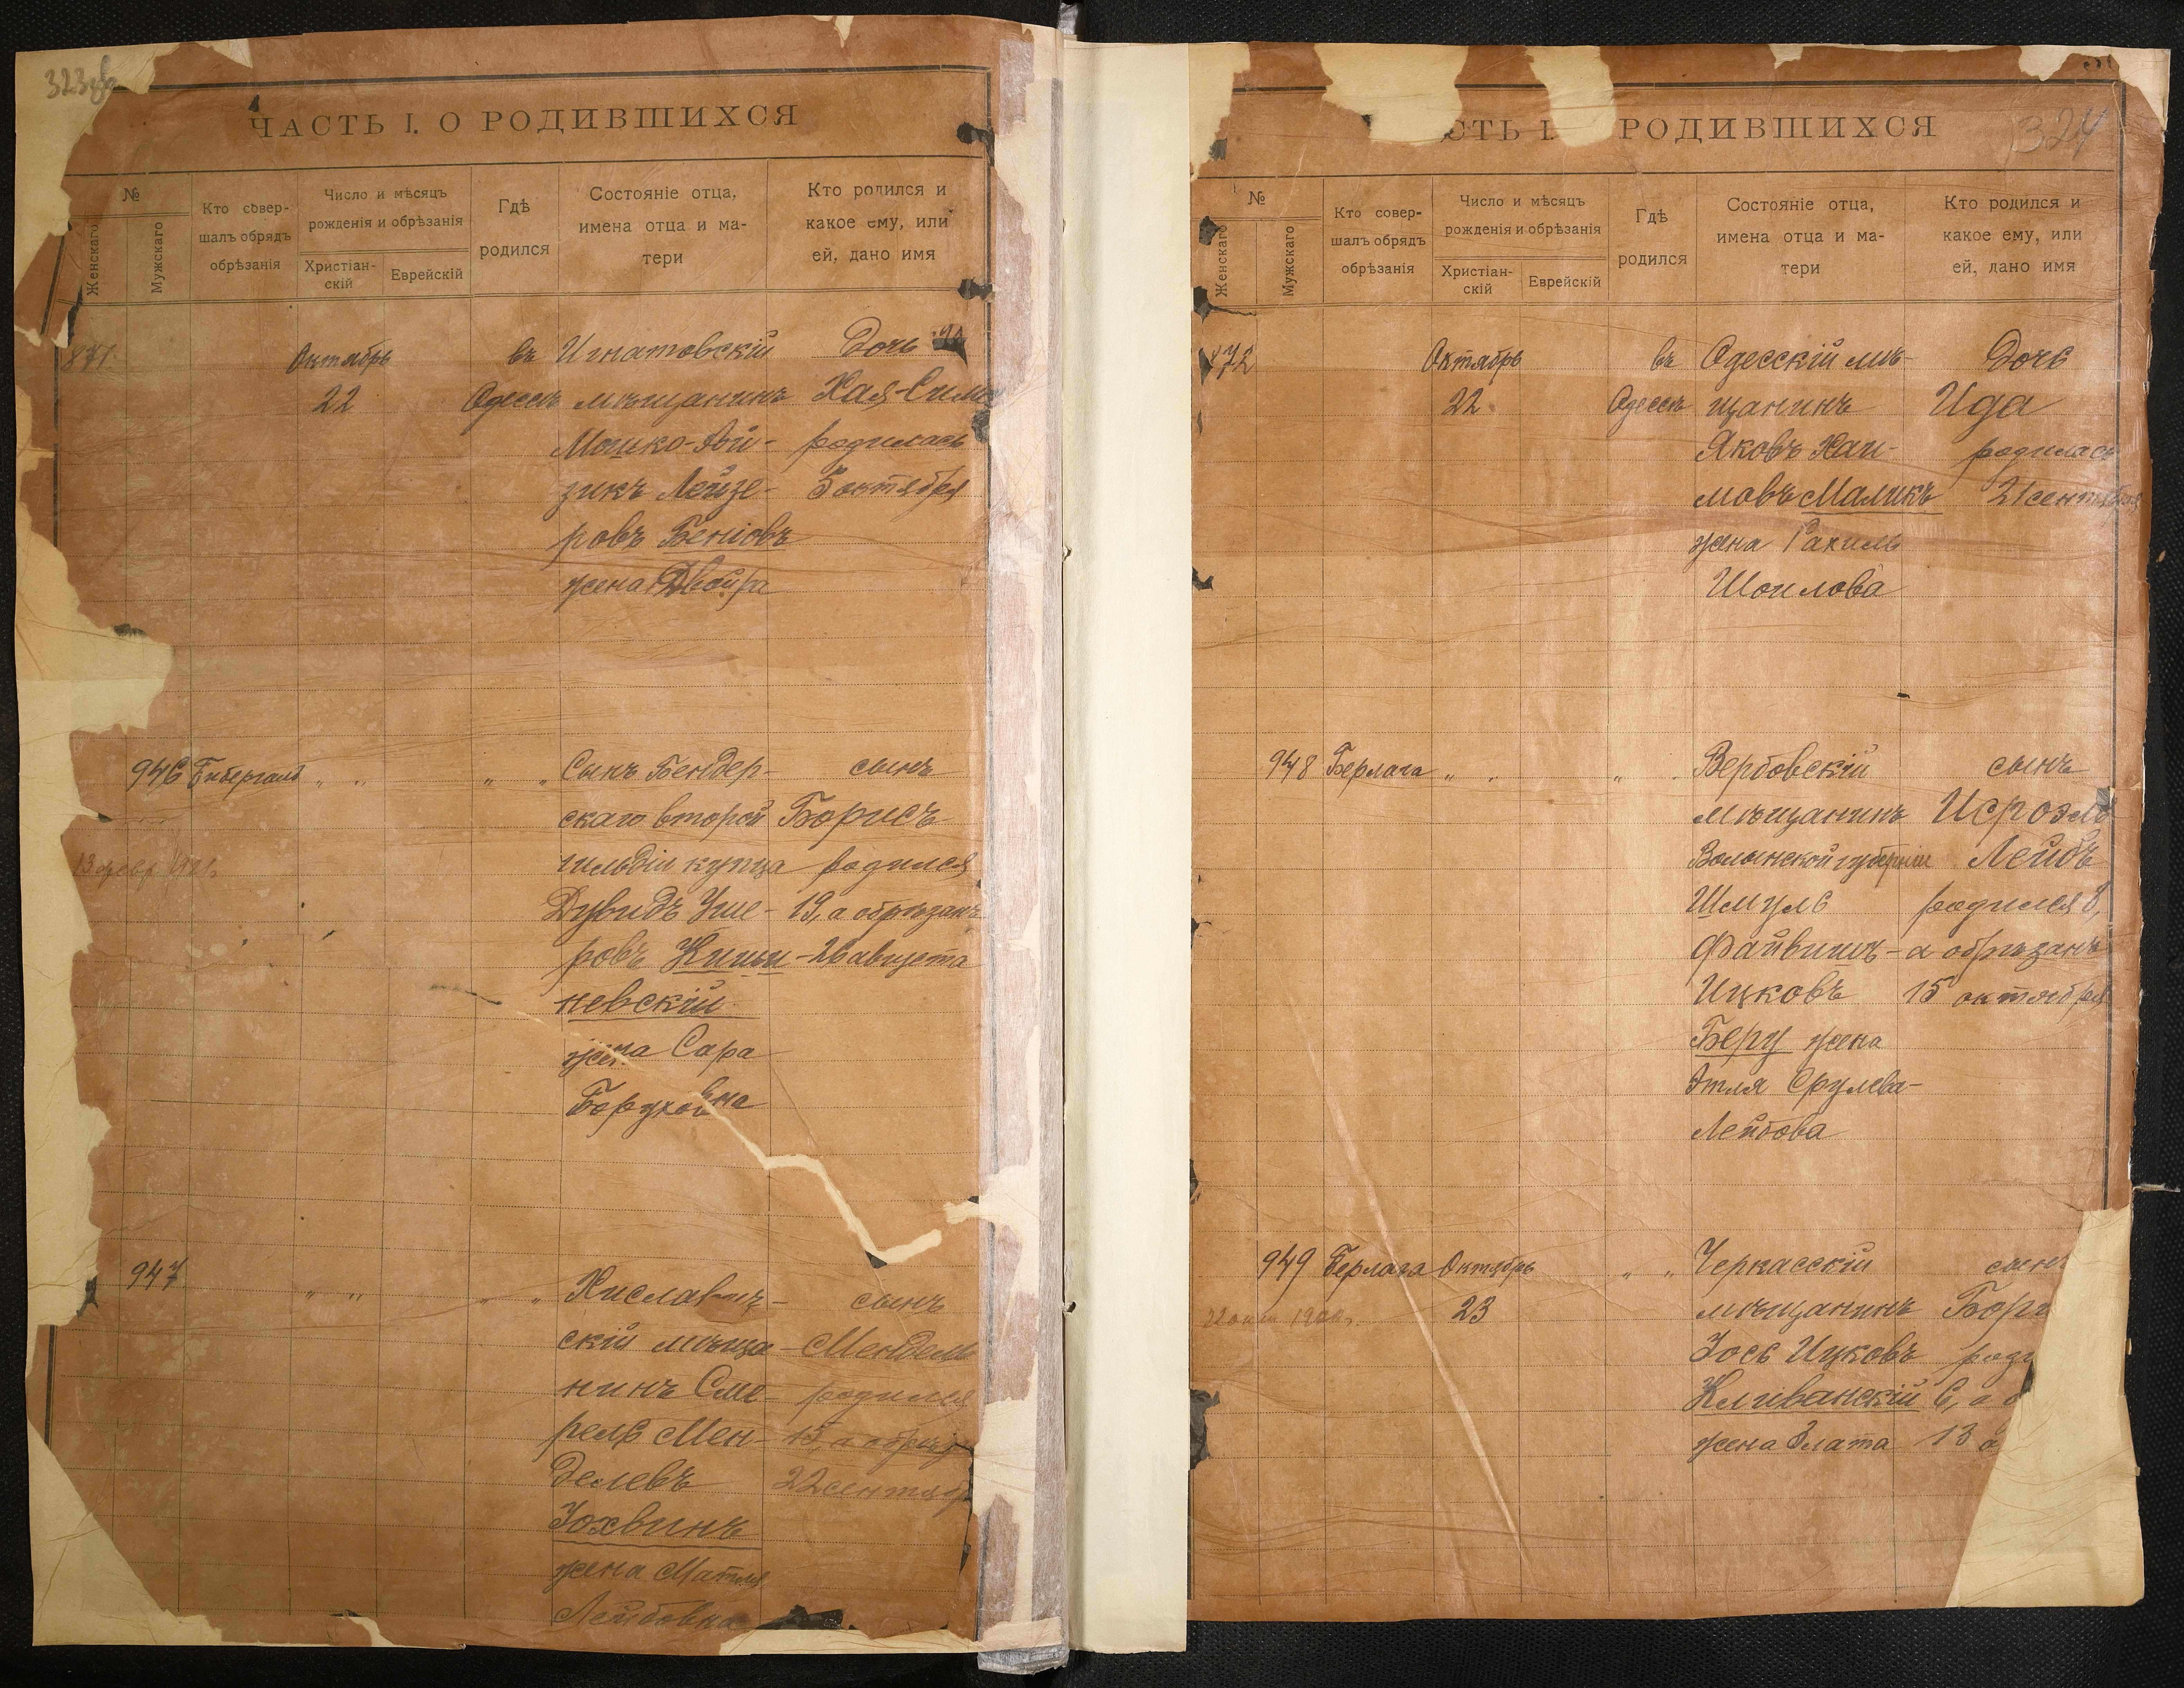 323
ЧАСТЬ I. О РОДИВШИХСЯ
№
Женскаго
Мужскаго
Кто совер-
шалъ обрядъ
обрѣзанія
Число и мѣсяцъ
рожденія и обрѣзанія
Христіан-
скій
Еврейскій
Гдѣ
родился
Состояніе отца,
имена отца и ма-
тери
Кто родился и
какое ему, или
ей, дано имя
871
Октябрь
22
въ
Одессѣ
Игнатовскій
мѣщанинъ
Мошко-Ай-
зикъ Лейзе-
ровъ Беніовъ
жена Двойра
Дочь
Хая-Сима
родилась
5 октября
946
"
"
"
"
Сынъ Бендер-
скаго второй
гильдіи купца
Дувидъ Уше-
ровъ Киши-
невскій
жена Сара
Боруховна
сынъ
Борисъ
родился
19, а обрѣзанъ
26 августа
947
"
"
"
"
Хиславич-
скій мѣща-
нинъ Сме-
рель Мен-
делевъ
Зохвинъ
жена Матля
Лейбовна
сынъ
Мендель
родился
15, а обрѣз
22 сентяб
324
СТЬ I.
РОДИВШИХСЯ
№
Женскаго
Мужскаго
Кто совер-
шалъ обрядъ
обрѣзанія
Число и мѣсяцъ
рожденія и обрѣзанія
Христіан-
скій
Еврейскій
Гдѣ
родился
Состояніе отца,
имена отца и ма-
тери
Кто родился и
какое ему, или
ей, дано имя
872
Октябрь
22
въ
Одессѣ
Одесскій мѣ-
щанинъ
Яковъ Хаи-
мовъ Маликъ
жена Рахиль
Шоилова
Дочь
Ида
родилась
21 сентября
948
Берлага
"
"
"
Вербовскій
мѣщанинъ
Волынской губерніи
Шмуль
Файвишъ
Ицковъ
Беру жена
Этля Срулева-
Лейбова
сынъ
Исроэль
Лейбъ
родился 8,
а обрѣзанъ
15 октября
949
Берлага
Октябрь
23
"
"
Черкасскій
мѣщанинъ
Іось Ицковъ
Кливанскій
жена Злата
сынъ
Бори
роди
6, а о
13